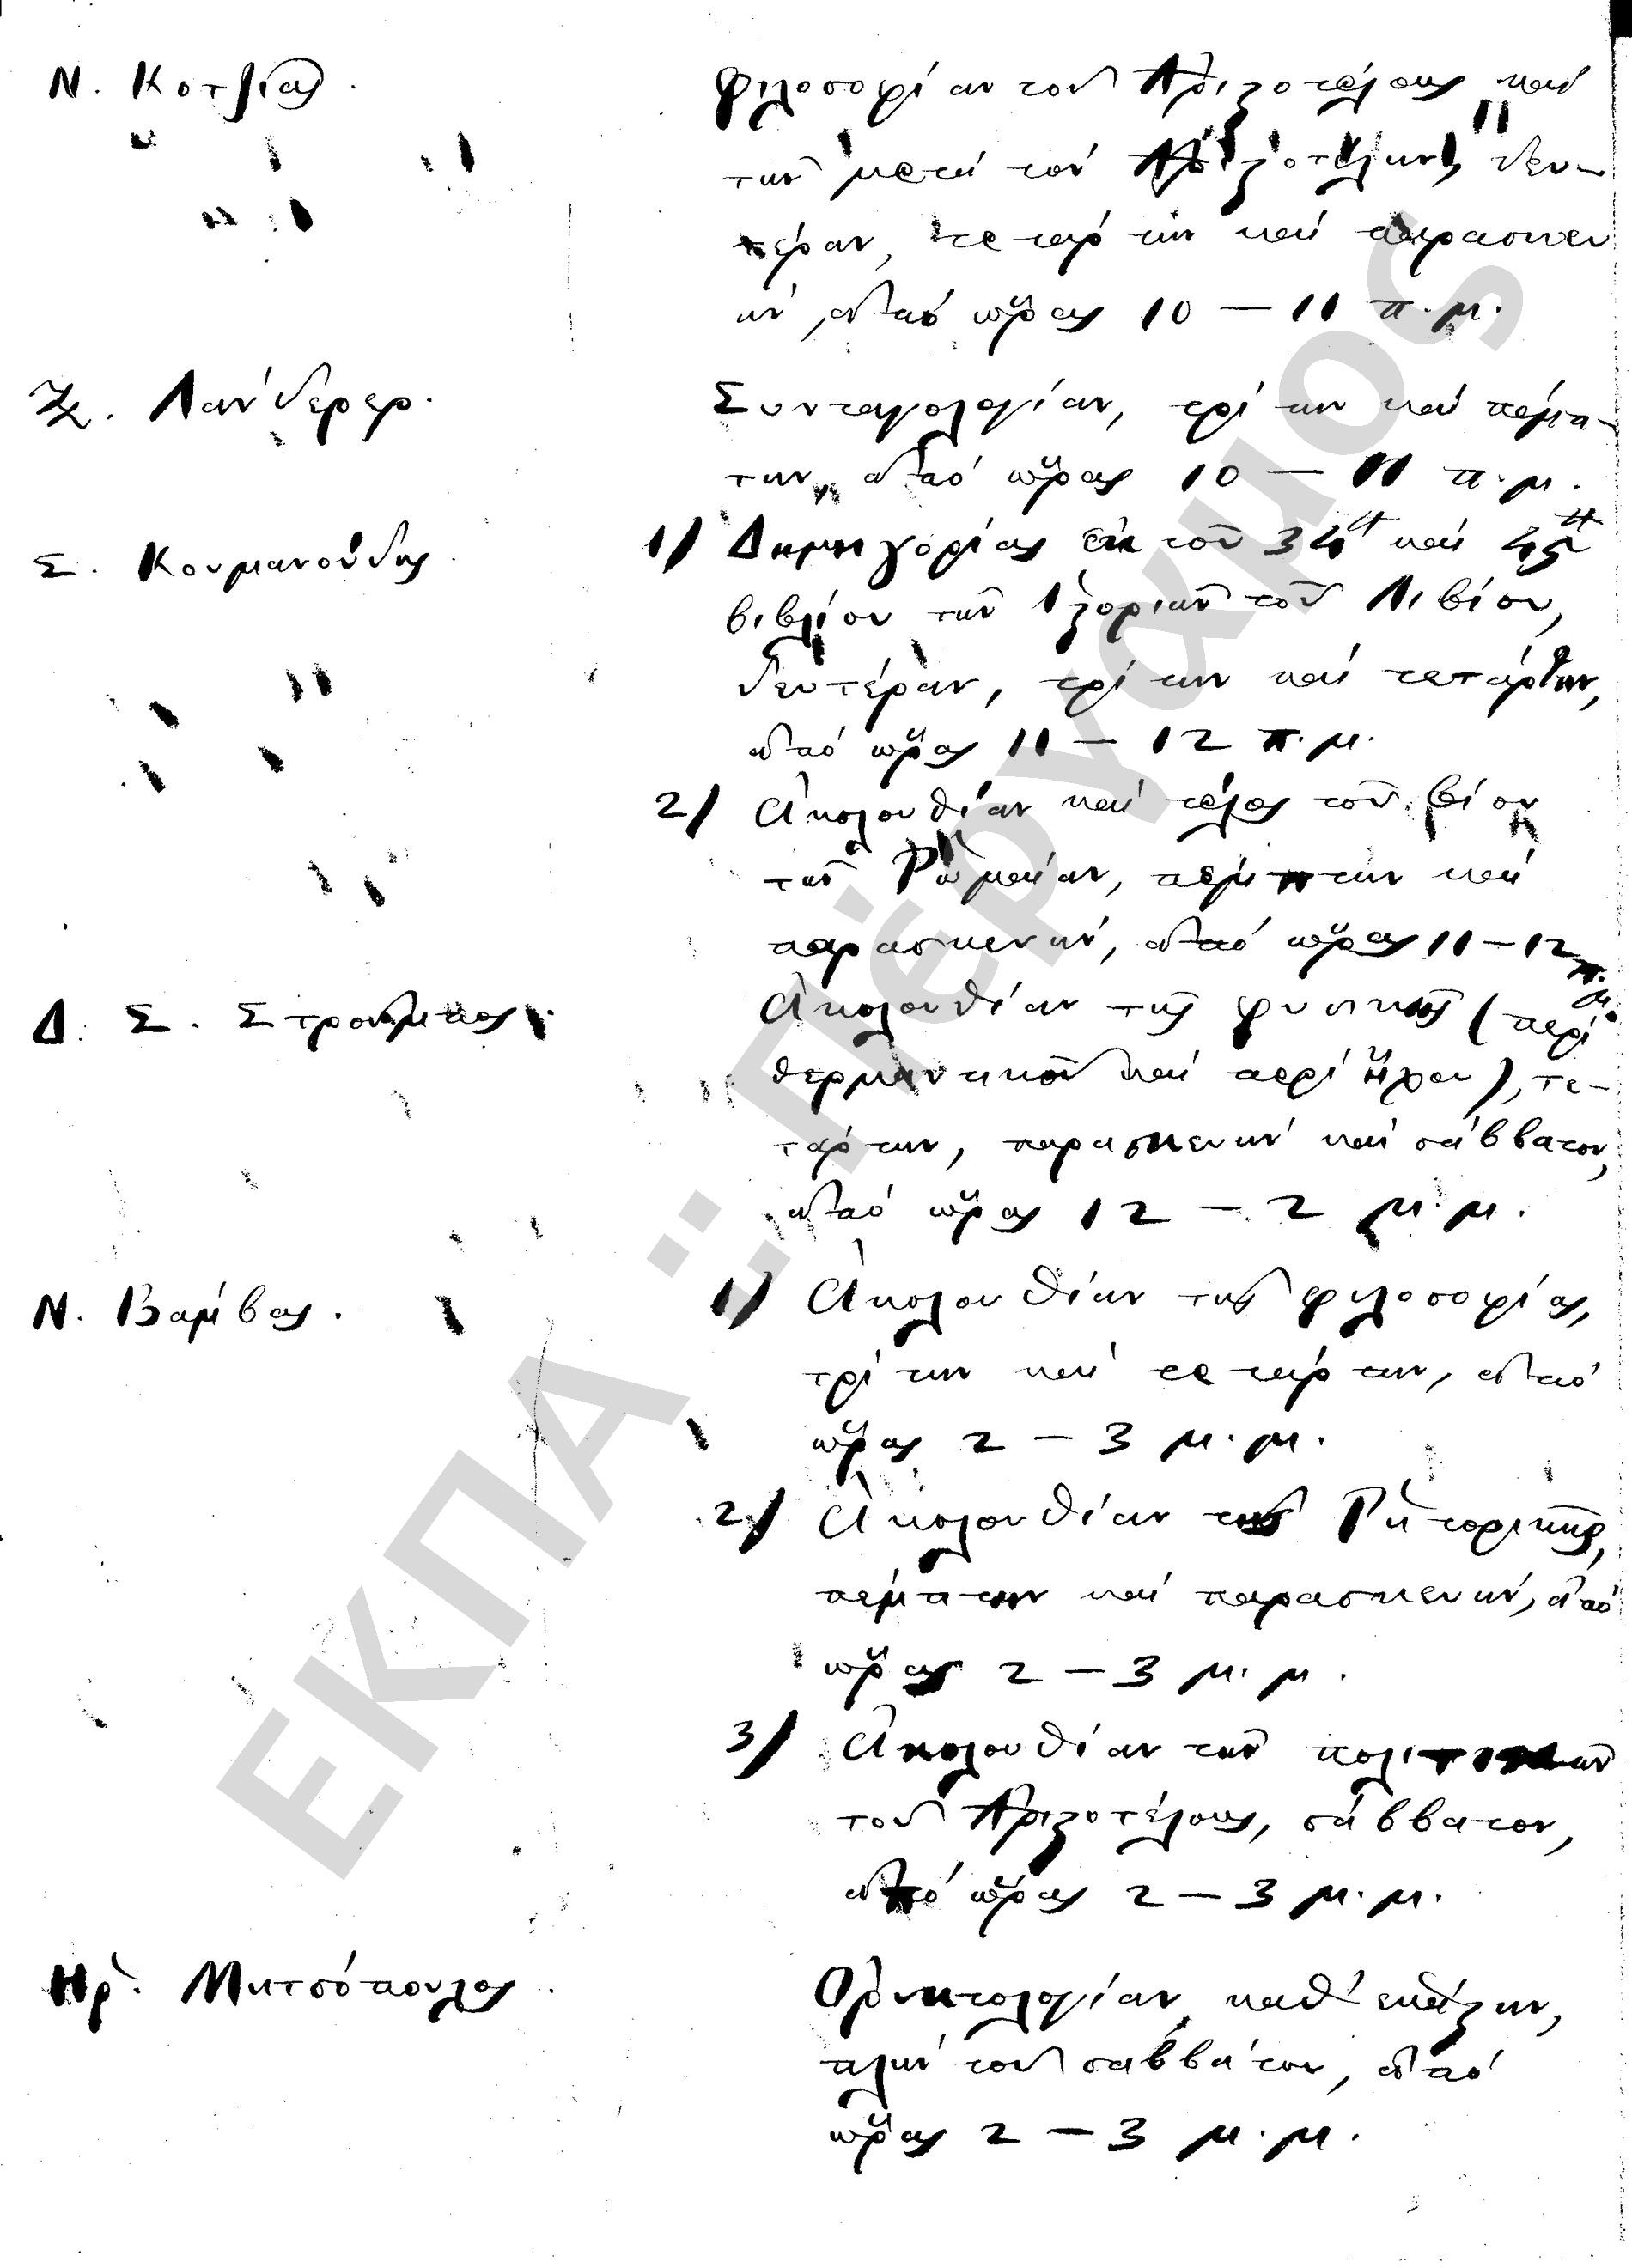 Ν. Κοτζιᾶς. Φιλοσοφίαν τοῦ Ἀριστοτέλους καὶ
τῶν μετὰ τὸν Ἀριστοτέλην, δευ-
τέραν, τετάρτην καὶ παρασκευ
ὴν, ἀπὸ ὥρας 10 — 11 π.μ.
Ξ. Λάνδερερ. Συνταγολογίαν, τρίτην καὶ πέμπ-
την, ἀπὸ ὥρας 10 — 11 π.μ.
Σ. Κουμανούδης. 1) Δημηγορίας ἐκ τοῦ 34 καὶ 45
βιβλίου τῶν Ἱστοριῶν τοῦ Λιβίου,
δευτέραν, τρίτην καὶ τετάρτην,
ἀπὸ ὥρας 11 — 12 π.μ.
2) Ἀκολουθίαν καὶ τέλος τοῦ βίου
τῶν Ῥωμαίων, πέμπτην καὶ
παρασκευὴν, ἀπὸ ὥρας 11 — 12 π.μ.
Δ. Σ. Στρούμπος. Ἀκολουθίαν τῆς φυσικῆς (περὶ
θερμαντικοῦ καὶ περὶ ἤχου), τε-
τάρτην, παρασκευὴν καὶ σάββατον,
ἀπὸ ὥρας 12 — 2 μ.μ.
Ν. Βάμβας. 1) Ἀκολουθίαν τῆς φιλοσοφίας,
τρίτην καὶ τετάρτην, ἀπὸ
ὥρας 2 — 3 μ.μ.
2) Ἀκολουθίαν τῆς Ῥητορικῆς,
πέμπτην καὶ παρασκευὴν, ἀπὸ
ὥρας 2 — 3 μ.μ.
3) Ἀκολουθίαν τῶν πολιτικῶν
τοῦ Ἀριστοτέλους, σάββατον,
ἀπὸ ὥρας 2 — 3 μ.μ.
Ἡρ. Μητσόπουλος. Ὀρυκτολογίαν καθ' ἑκάστην,
πλὴν τοῦ σαββάτου, ἀπὸ
ὥρας 2 — 3 μ.μ.
ΕΚΠΑ: Πέργαμος